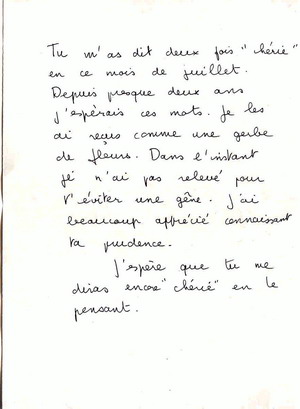 Tu m'as dit deux fois "chérie"
en ce mois de juillet.
Depuis presque deux ans
j'espérais ces mots. Je les
ai reçus comme une gerbe
de fleurs. Dans l'instant
je n'ai pas relevé pour
t'éviter une gêne. J'ai
beaucoup apprécié connaissant
ta prudence.
J'espère que tu me
diras encore "chérie" en le
pensant.